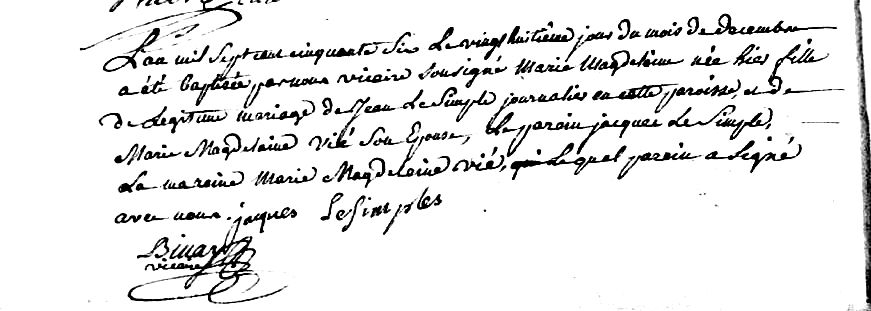 L'an mil Sept cent cinquante Six Le vingt huitième jour du mois de decembre
a été baptisée par nous vicaire soussigné Marie Magdeleine née hier fille
de Legitime mariage de Jean Le Simple journalier en cette paroisse et de
Marie Magdelaine Vié Son Epouse, Le parain jacques Le Simple,
La maraine Marie Magdeleine vié, Lequel parain a Signé
avec nous. jacques Lesimples
vicaire